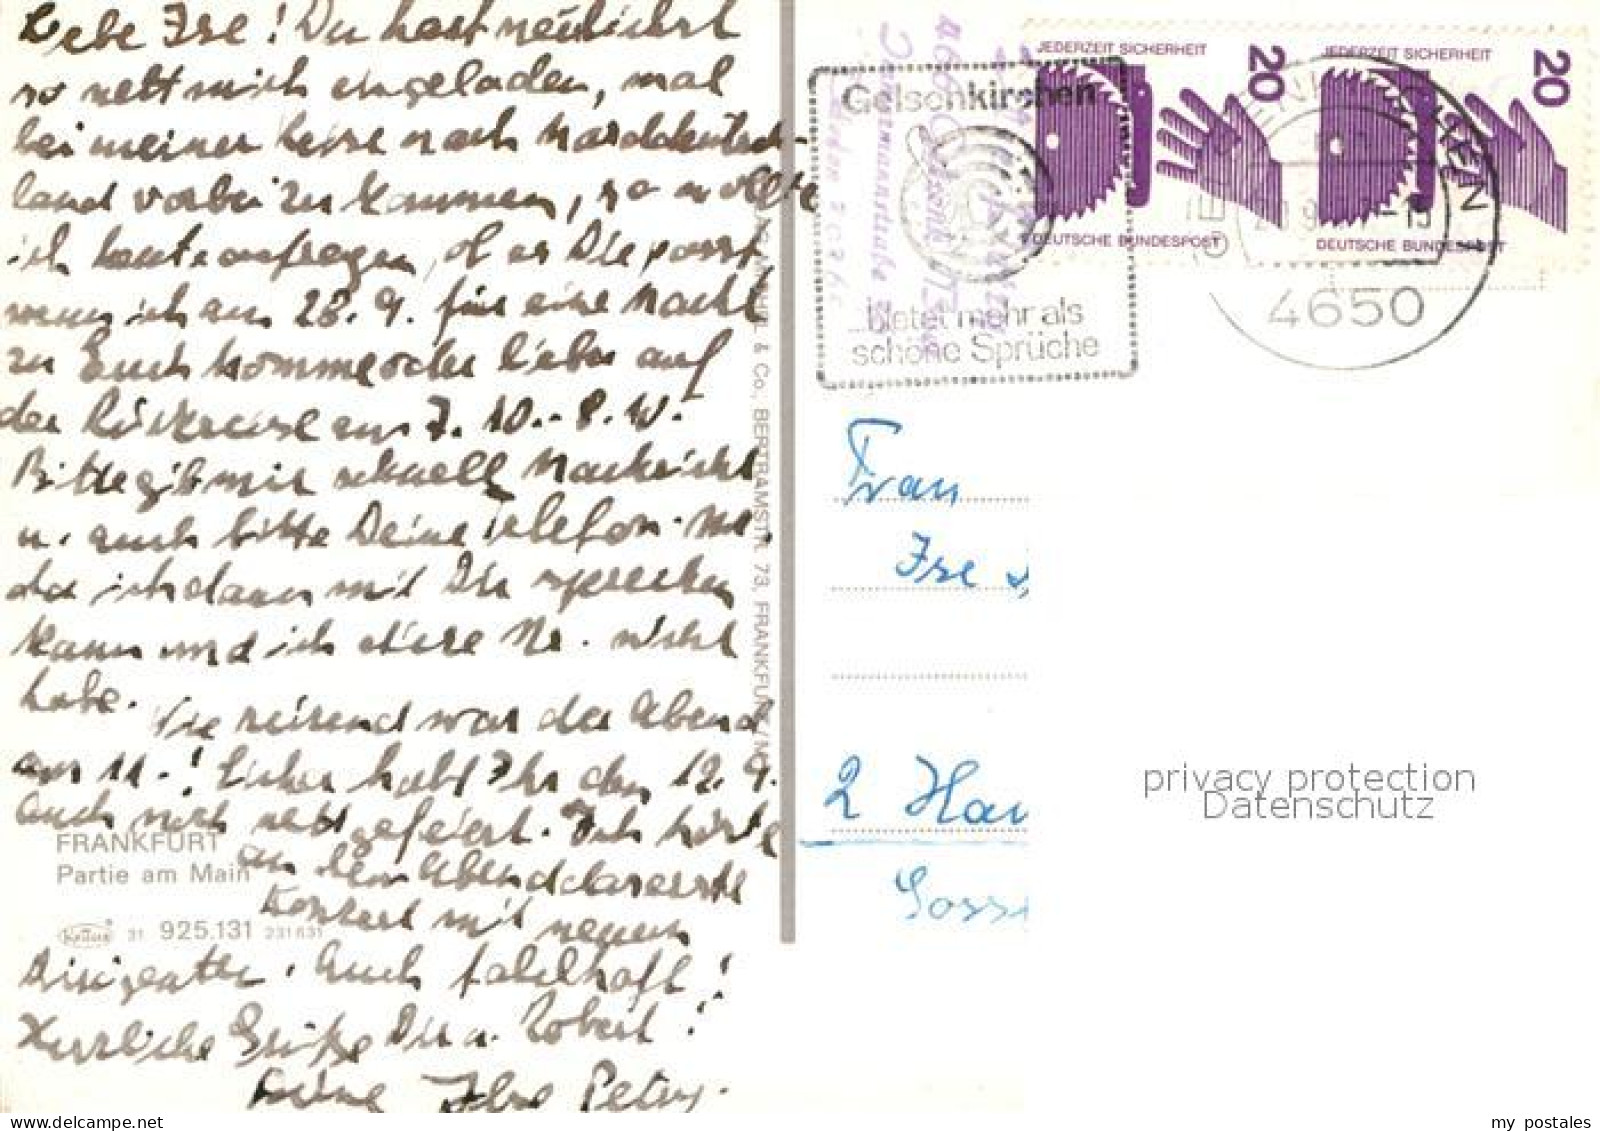 Liebe Ise! Du hast neulichst
so nett mich eingeladen, mal
bei meiner Reise nach Norddeutsch-
land vorbei zu kommen, so wollte
ich heute anfragen, ob es Dir passt,
wenn ich am 28. 9. für eine Nacht
zu Euch komme oder lieber auf
der Rückreise am 7. 10. - 8. 10.
Bitte gib mir schnell Nachricht
u. auch bitte Deine Telefon-Nr.
da ich dann mit Dir sprechen
kann und ich diese Nr. nicht
habe. Wie reizend war der Abend
am 11.! Sicher habt Ihr den 12. 9.
auch noch nett gefeiert. Ich hörte
an dem Abend das erste
Konzert mit neuem
Dirigenten. Auch fabelhaft!
Herzliche Grüße Dir u. Robert!
Deine Ilse
FRANKFURT
Partie am Main
Krüger 31 925.131
& Co., BERTRAMSTR. 73, FRANKFURT/M
Gelsenkirchen
...bietet mehr als
schöne Sprüche
JEDERZEIT SICHERHEIT
20
DEUTSCHE BUNDESPOST
JEDERZEIT SICHERHEIT
20
DEUTSCHE BUNDESPOST
4650
Frau
Ise
2 Ham
privacy protection
Datenschutz
my postales